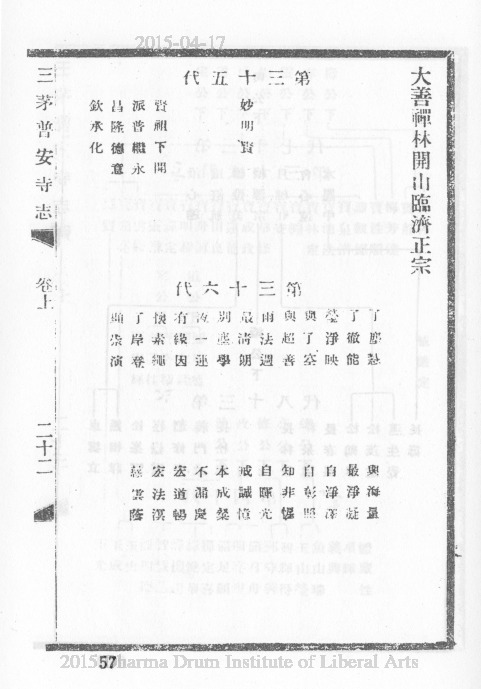 2015-04-17
大善禪林開山臨濟正宗
第三十五代
妙明賢
賢祖下開
派普繼永
昌隆德意
欽承化
第三十六代
了塵
了徹能
瑩淨映
與了
與超善
雨法週
最清朗
別塵學
一蓮
有緣因
懷素繩
了岸登
演
與海量
最淨凝
自淨
自彰照
知非
自暉光
戒誠憶
本成燦
不漏
宏道暢
宏法演
慈雲蔭
三茅普安寺志
卷上
二十二
57
2015 Dharma Drum Institute of Liberal Arts